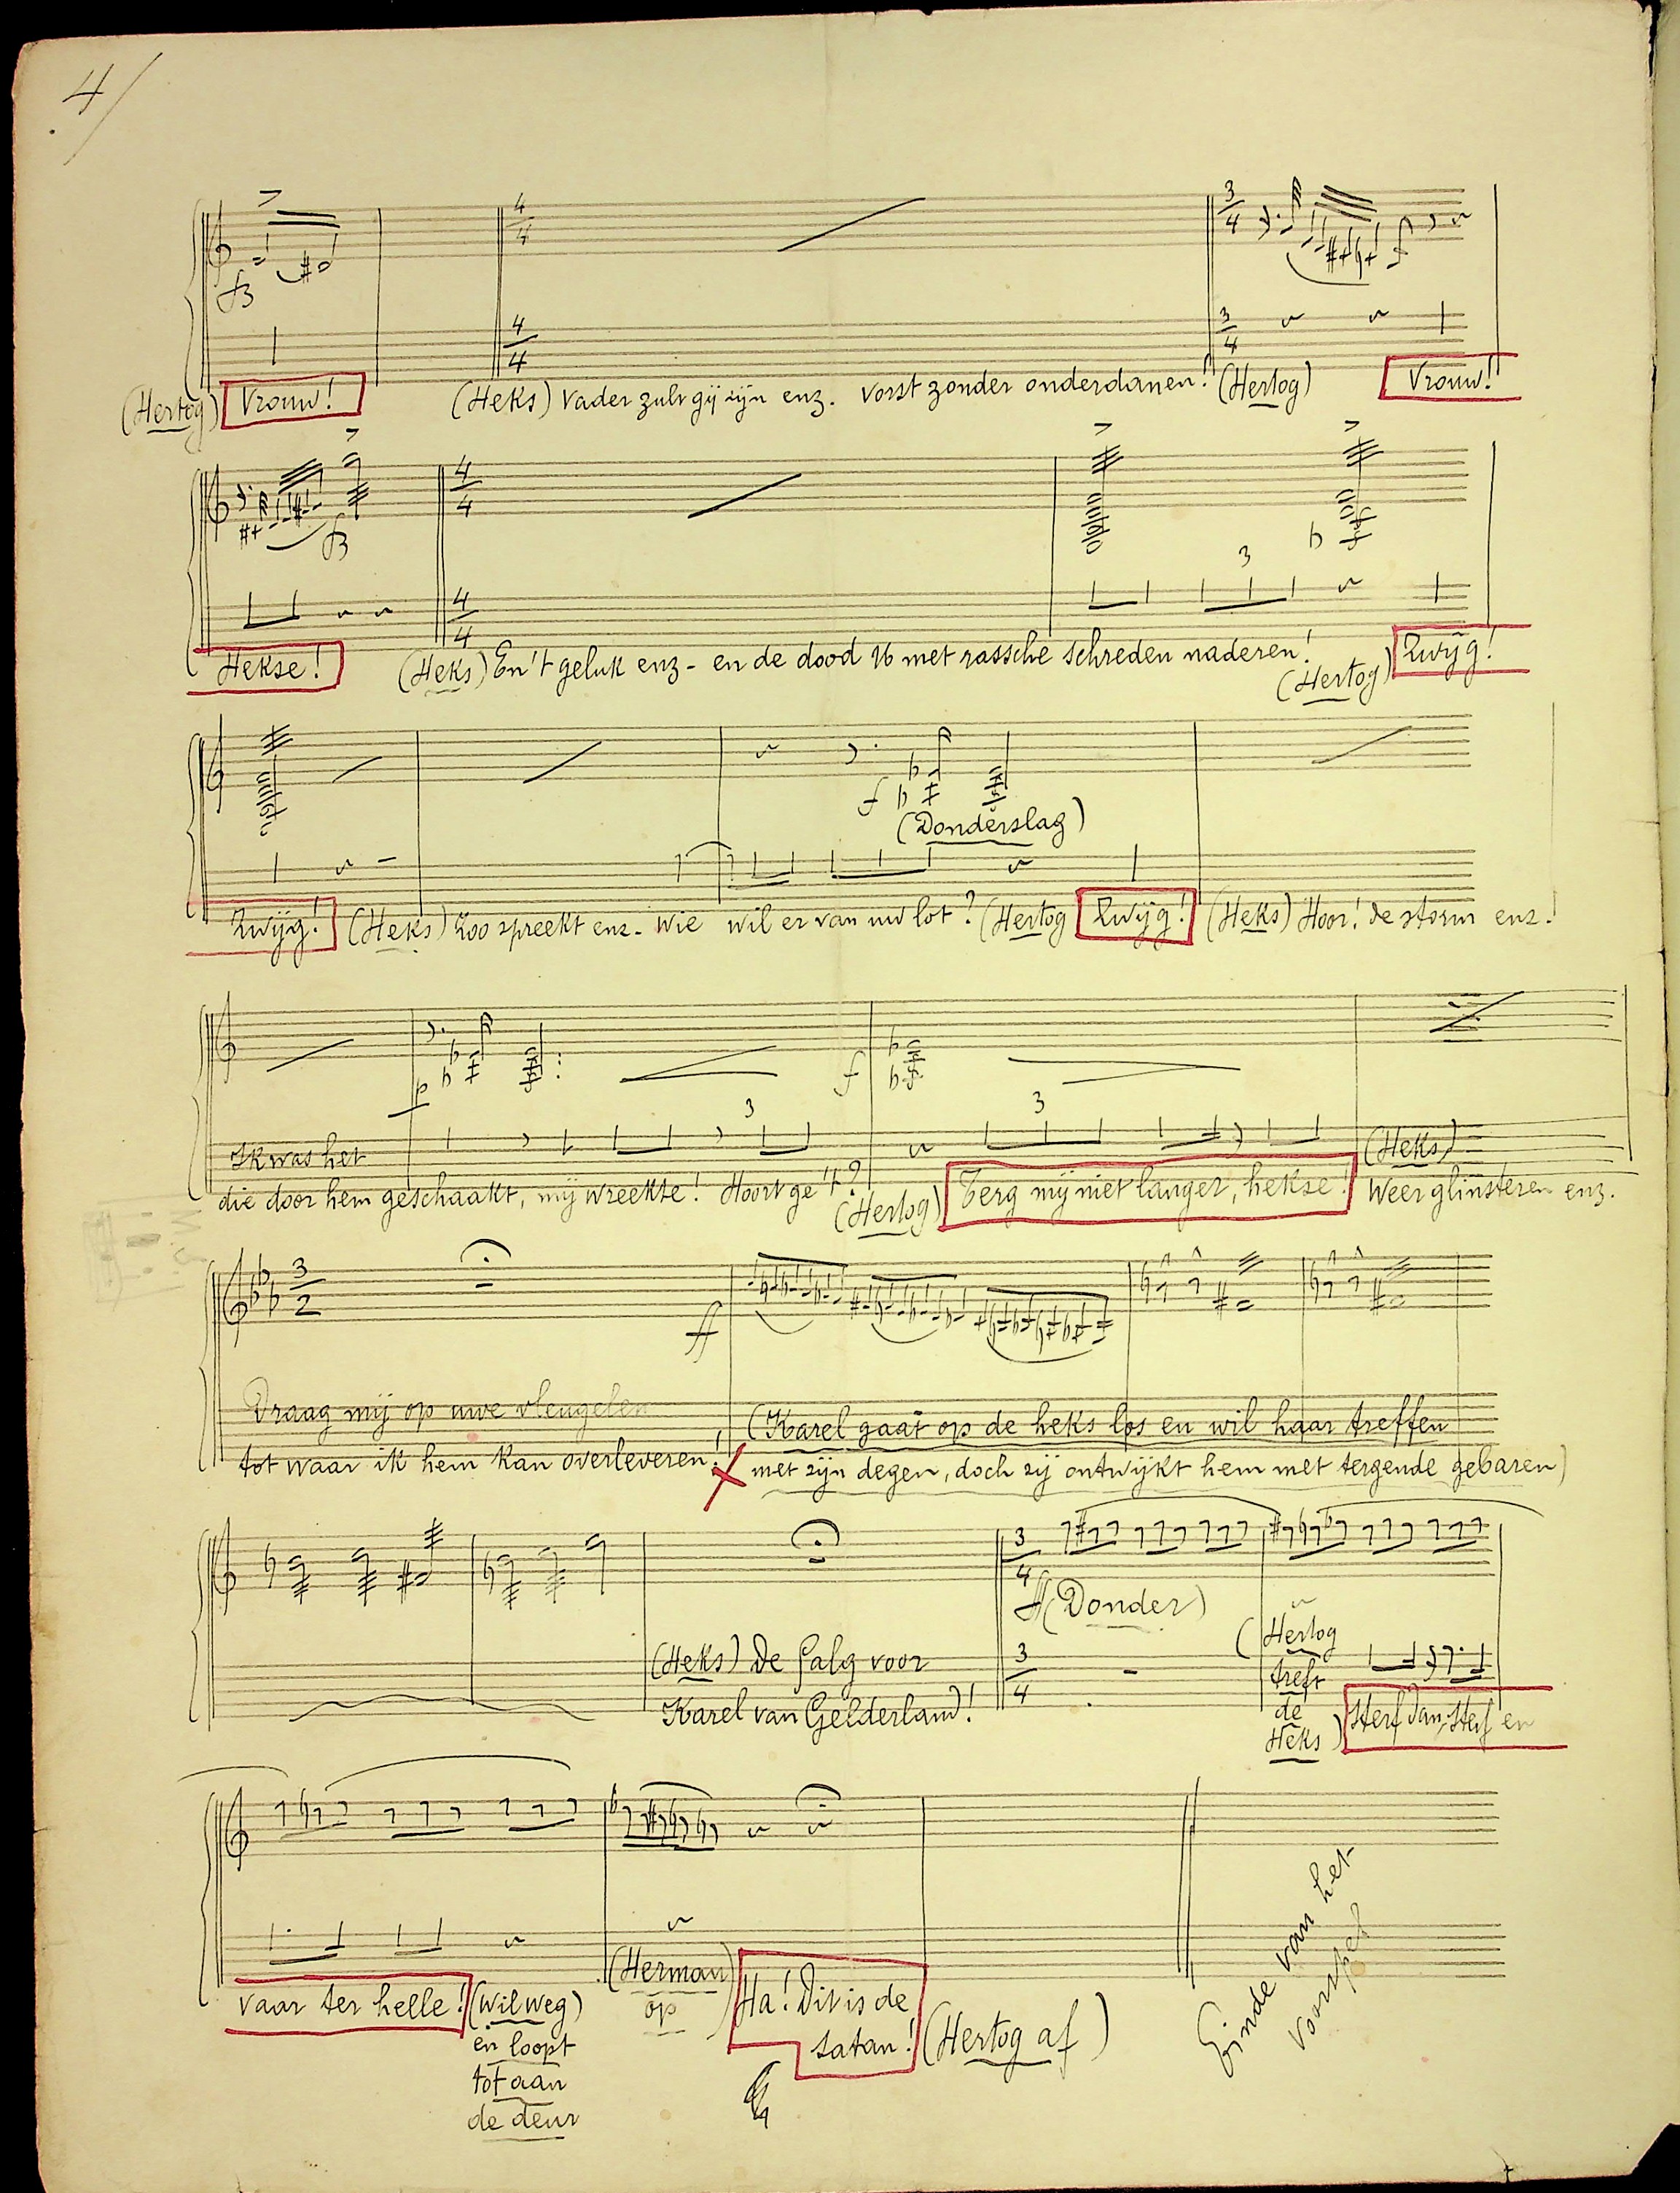 4/
(Hertog) Vrouw! (Heks) Vader zult gij zijn enz. Vorst zonder onderdanen! (Hertog) Vrouw!
Hekse! (Heks) En 't geluk enz - en de dood U met rassche schreden naderen! (Hertog) Zwijg!
(Donderslag)
Zwijg! (Heks) Zoo spreekt enz. Wie wil er van uw lot? (Hertog Zwijg! (Heks) Hoor! de storm enz.
Ik was het
die door hem geschaakt, mij wreekte! Hoort ge 't? (Hertog) Terg mij niet langer, hekse! (Heks) Weerglinsteren enz.
Draag mij op uwe vleugelen
tot waar ik hem kan overleveren!
(Karel gaat op de heks los en wil haar treffen
met zijn degen, doch zij ontwijkt hem met tergende gebaren)
(Donder)
(Heks) De galg voor
Karel van Gelderland!
(Hertog
treft
de
Heks) Sterf dan, sterf en
vaar ter helle! (Wil weg)
en loopt
tot aan
de deur
(Herman)
op
Ha! Dit is de
satan! (Hertog af)
Einde van het
voorspel